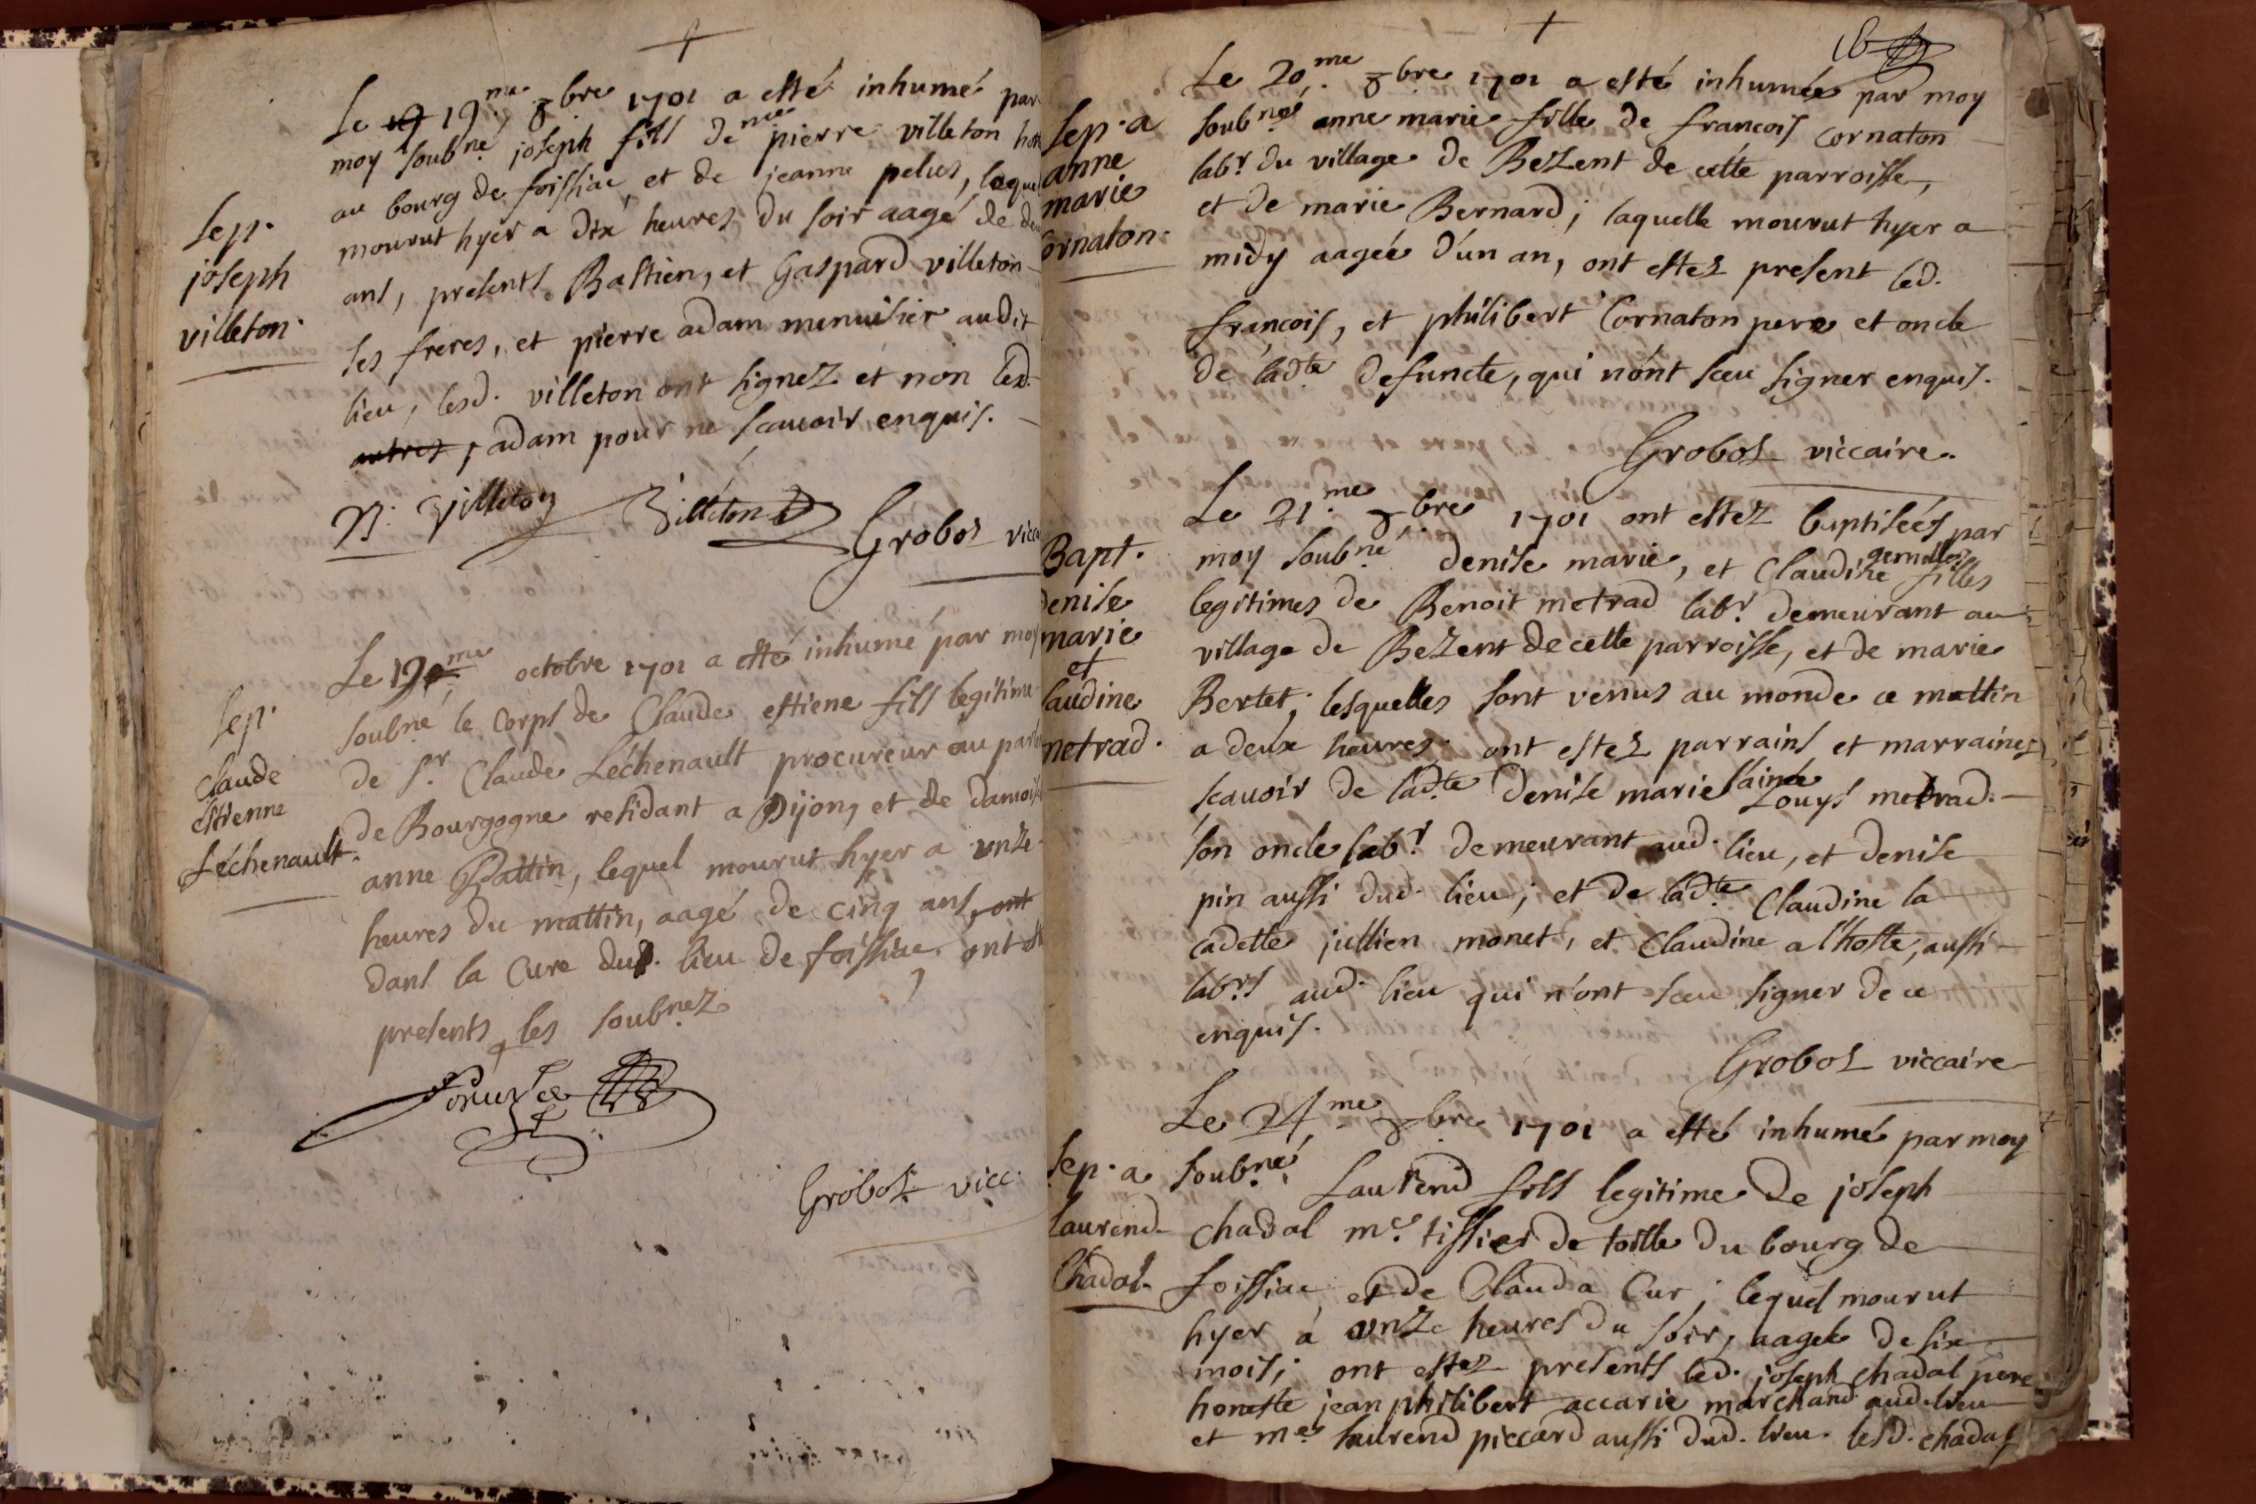 Le 19.me 8bre 1701 a esté inhumé par
moy soub.né joseph fils de me pierre villeton
au bourg de foissiac et de jeanne pelus, lequel
mourut hyer a dix heures du soir aagé de
ans, presents Bastien, et Gaspard villeton
ses freres, et pierre adam menuisier audit
lieu, lesd. villeton ont signez et non led.
autres, adam pour ne scauoir enquis.
Sep.
joseph
villeton.
B. Villeton Villeton Grobos vicc
Le 19me octobre 1701 a esté inhumé par moy
soubné le corps de Claude estiene fils legitime
de Sr. Claude Léchenault procureur au
de Bourgogne residant a Dijon, et de
anne Pattin, lequel mourut hyer a unze
heures du mattin, aagé de cinq ans, ont
dans la Cure dud. lieu de foissiac, ont
presents les soub.nez
Sep.
Claude
estienne
Léchenault.
Grobos vicc.
Le 20.me 8bre 1701 a esté inhumée par moy
soub.né anne marie fille de francois Cornaton
lab.r du village de BeZent de cette parroisse,
et de marie Bernard; laquelle mourut hyer a
midy aageé d'un an, ont estez present led.
francois, et philibert Cornaton pere et oncle
de ladte defuncte, qui n'ont sceu signer enquis.
Sep. a
anne
marie
ornaton.
Grobos viccaire.
Le 21.me 8bre 1701 ont estez baptiseés par
moy soub.né denise marie, et Claudine gemelles filles
legitimes de Benoit metrad lab.r demeurant au
village de BeZent de cette parroisse, et de marie
Bertet; lesquelles sont venus au monde ce mattin
a deux heures. ont estez parrains et marraines
scauoir de lad.te denise marie l'ainée Louys metrad.
son oncle lab.r demeurant aud. lieu, et denise
pin aussi dud. lieu; et de lad.te Claudine la
cadette jullien monet, et Claudine a l'hoste, aussi
lab.rs aud. lieu qui n'ont sceu signer de ce
enquis.
Bapt.
denise
marie
et
laudine
metrad.
Grobos viccaire
Le 24.me 8bre 1701 a esté inhumé par moy
soub.né Laurend fils legitime de joseph
chadal m.e tissier de toille du bourg de
foissiac et de Clauda Cur; lequel mourut
hyer à unze heures du soir, aageé de six
mois; ont estez presents led. joseph chadal pere
honeste jean philibert accarie marchand aud. lieu
et me laurend piccard aussi dud. lieu. lesd. chadal
Sep. a
laurend
Chadal.